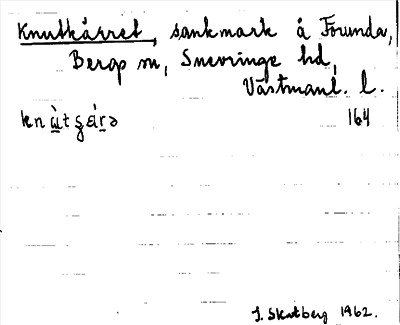 Knutkärret, sankmark å Forunda,
Berop sn, Snevringe hd,
Västmanl. l.
164
J. Skutberg 1962.